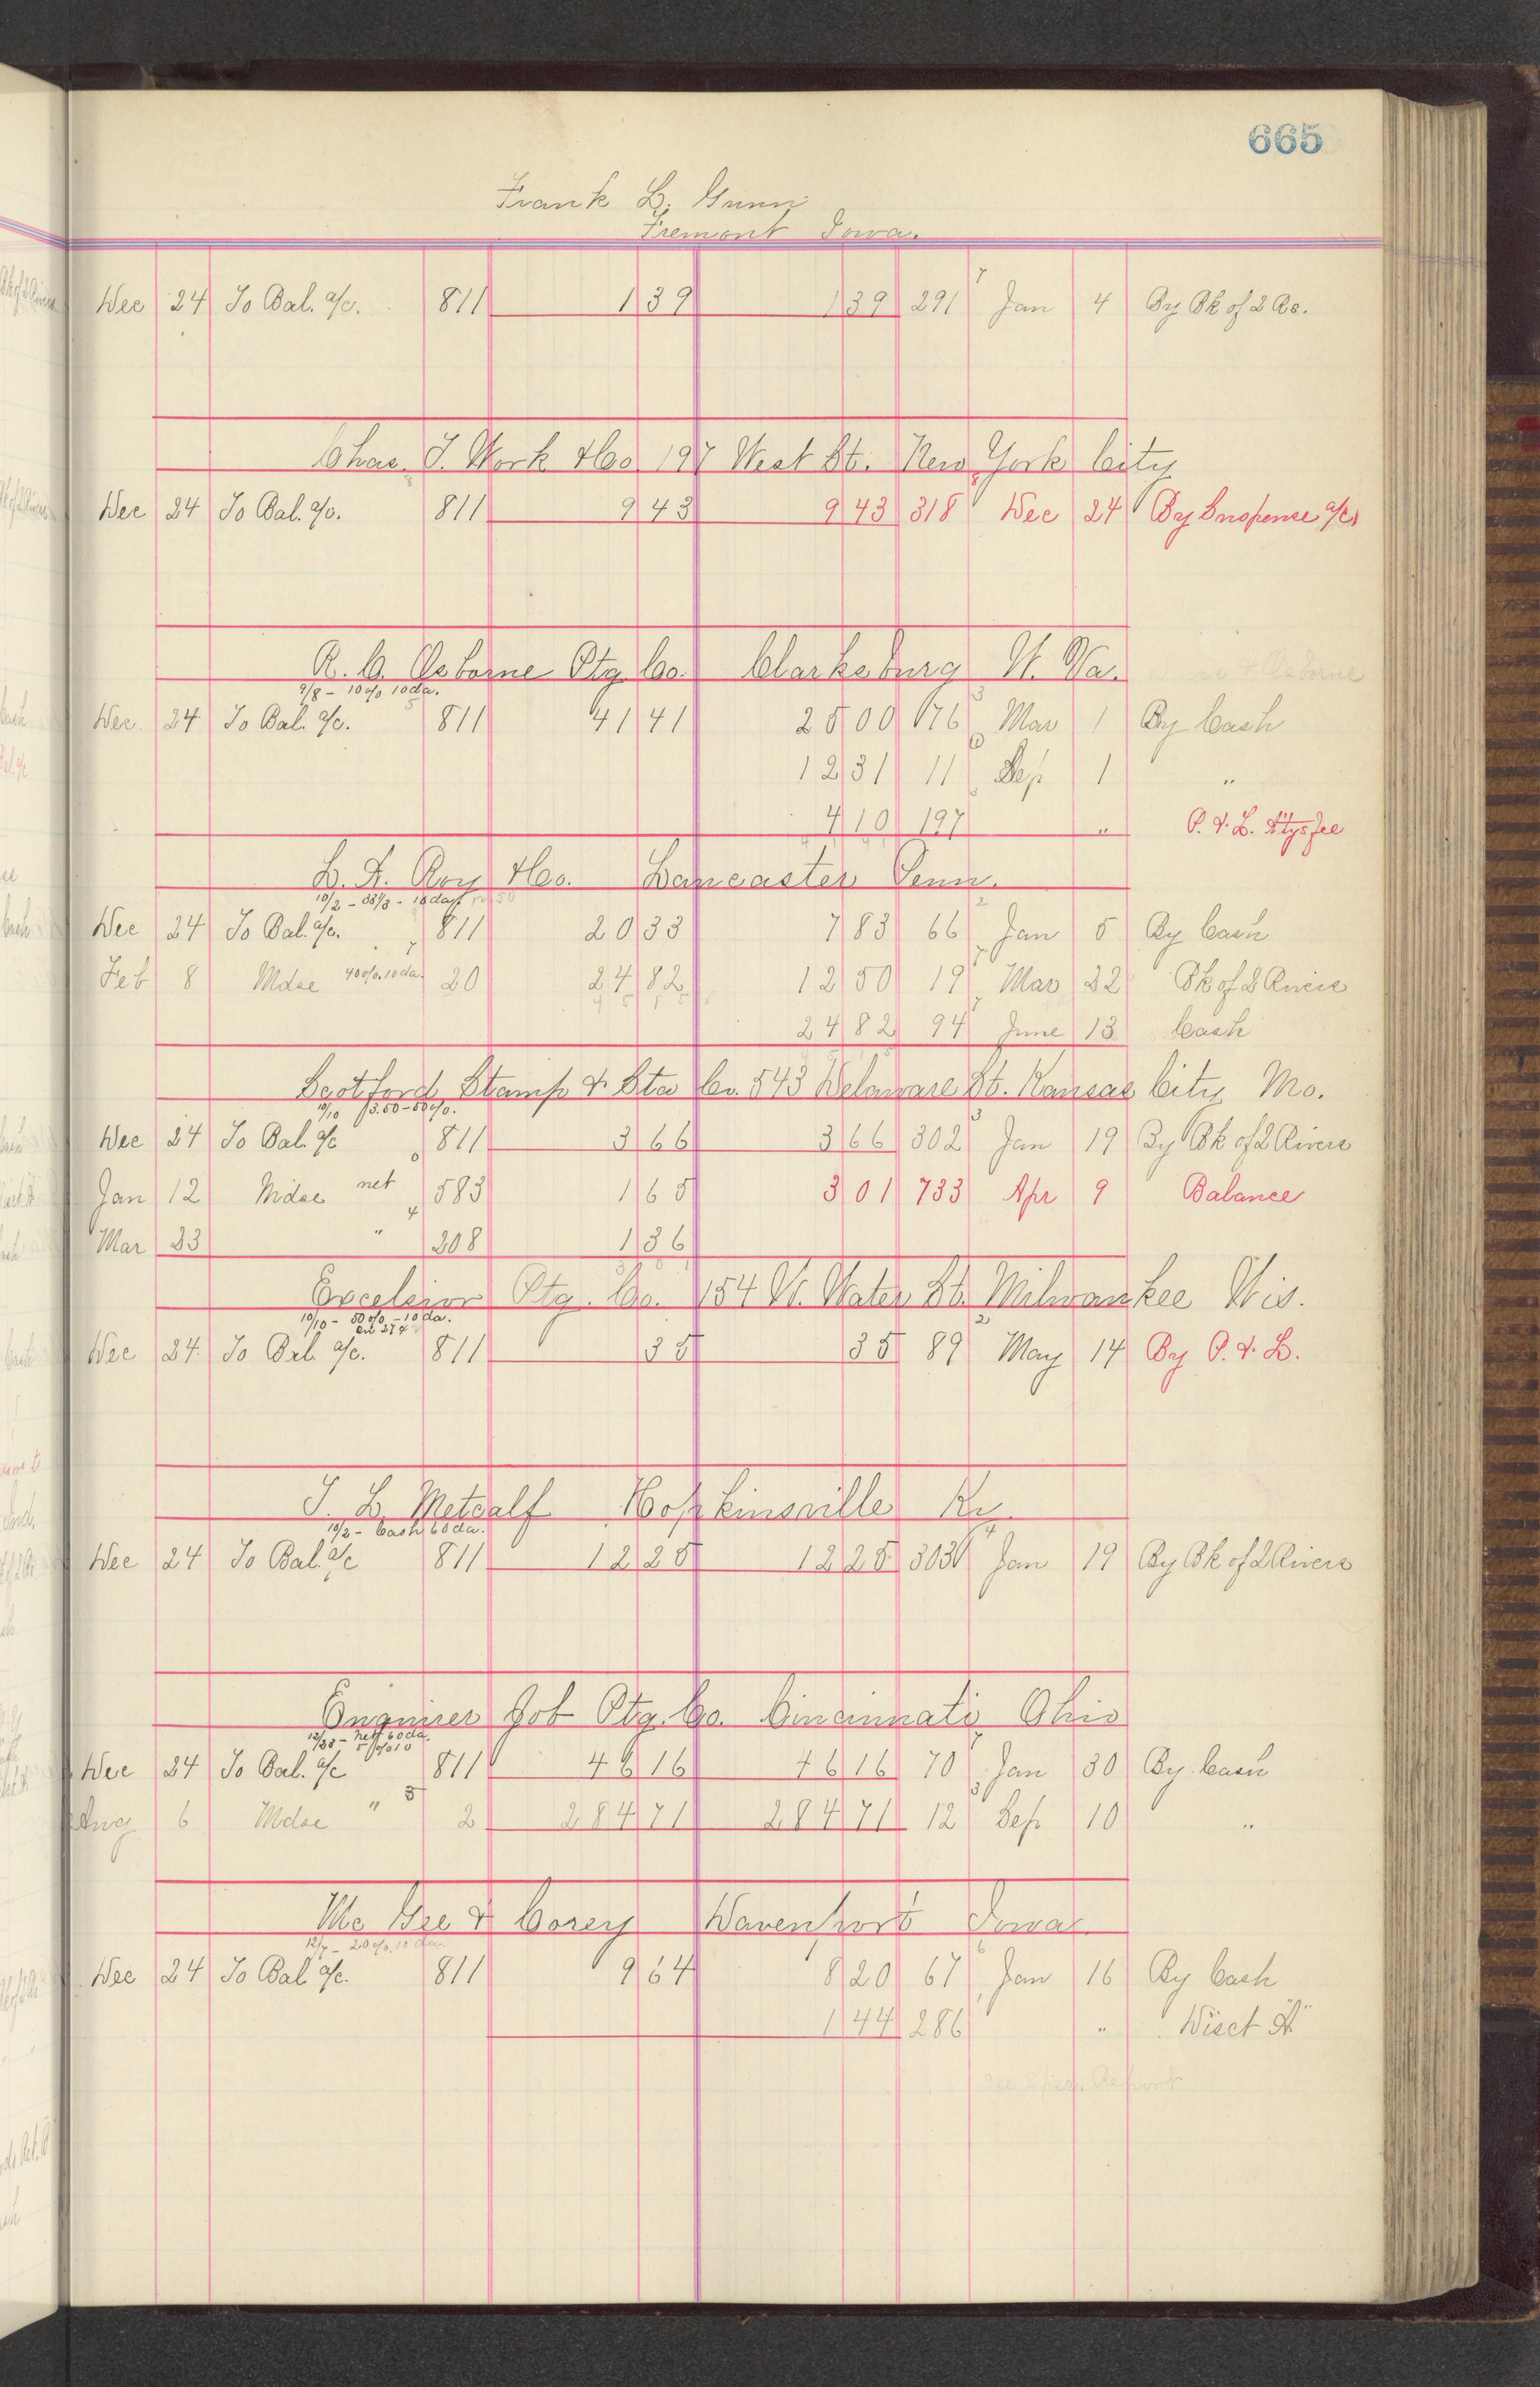 665
Frank L. Gunn
Fremont Iowa.
Dec 24 To Bal. a/c. 811 1 39 1 39 291 7 Jan 4 By Bk of 2 Rs.
Chas. T. Work & Co. 197 West St. New York City
Dec 24 To Bal. a/c. 811 9 43 9 43 318 8 Dec 24 By Suspense a/c
R. C. Osborne Ptg. Co. Clarksburg W. Va.
9/8 - 10% 10 da.
Dec 24 To Bal. a/c. 811 41 41 25 00 176 3 Mar 1 By Cash
12 31 11 Sep 1 "
4 10 197 " P. & L. Att'ys fee
L. A. Roy & Co. Lancaster Penn.
10/2 - 33 1/3 - 10 days
Dec 24 To Bal. a/c. 811 20 33 7 83 66 2 Jan 5 By Cash
Feb 8 Mdse 40% 10 da. 7 20 24 82 12 50 19 7 Mar 22 Bk of 2 Rivers
24 82 94 7 June 13 Cash
Scotford Stamp & Sta Co. 543 Delaware St. Kansas City Mo.
10/10 $3.50 - 50%.
Dec 24 To Bal. a/c 811 3 66 3 66 302 3 Jan 19 By Bk of 2 Rivers
Jan 12 Mdse net 0 583 1 65 3 01 733 Apr 9 Balance
Mar 23 " 4 208 1 36
Excelsior Ptg. Co. 154 W. Water St. Milwaukee Wis.
10/10 - 50% - 10 da.
Dec 24 To Bal. a/c. 811 35 35 89 2 May 14 By P. & L.
T. L. Metcalf Hopkinsville Ky.
10/2 - Cash 60 da.
Dec 24 To Bal. a/c 811 12 25 12 25 303 4 Jan 19 By Bk of 2 Rivers
Enquirer Job Ptg. Co. Cincinnati Ohio
Net 60 da.
Dec 24 To Bal. a/c 811 46 16 46 16 70 7 Jan 30 By Cash
Aug 6 Mdse " 5 2 284 71 284 71 12 3 Sep 10 "
Mc Gee & Corey Davenport Iowa
12/7 - 20% 10 da.
Dec 24 To Bal. a/c. 811 9 64 8 20 67 6 Jan 16 By Cash
1 44 286 " Disct "A"
See Spec. Report